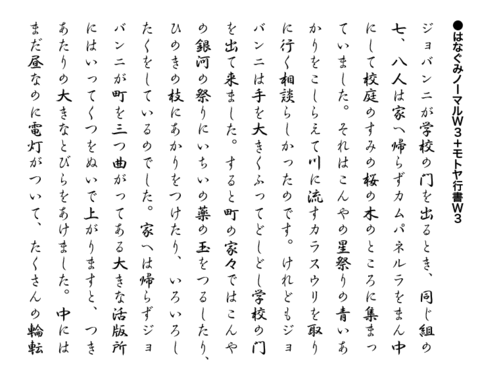 ●はなぐみノーマルW3＋モトヤ行書W3
ジョバンニが学校の門を出るとき、同じ組の
七、八人は家へ帰らずカムパネルラをまん中
にして校庭のすみの桜の木のところに集まっ
ていました。それはこんやの星祭りの青いあ
かりをこしらえて川に流すカラスウリを取り
に行く相談らしかったのです。けれどもジョ
バンニは手を大きくふってどしどし学校の門
を出て来ました。すると町の家々ではこんや
の銀河の祭りにいちいの葉の玉をつるしたり、
ひのきの枝にあかりをつけたり、いろいろし
たくをしているのでした。家へは帰らずジョ
バンニが町を三つ曲がってある大きな活版所
にはいってくつをぬいで上がりますと、つき
あたりの大きなとびらをあけました。中には
まだ昼なのに電灯がついて、たくさんの輪転